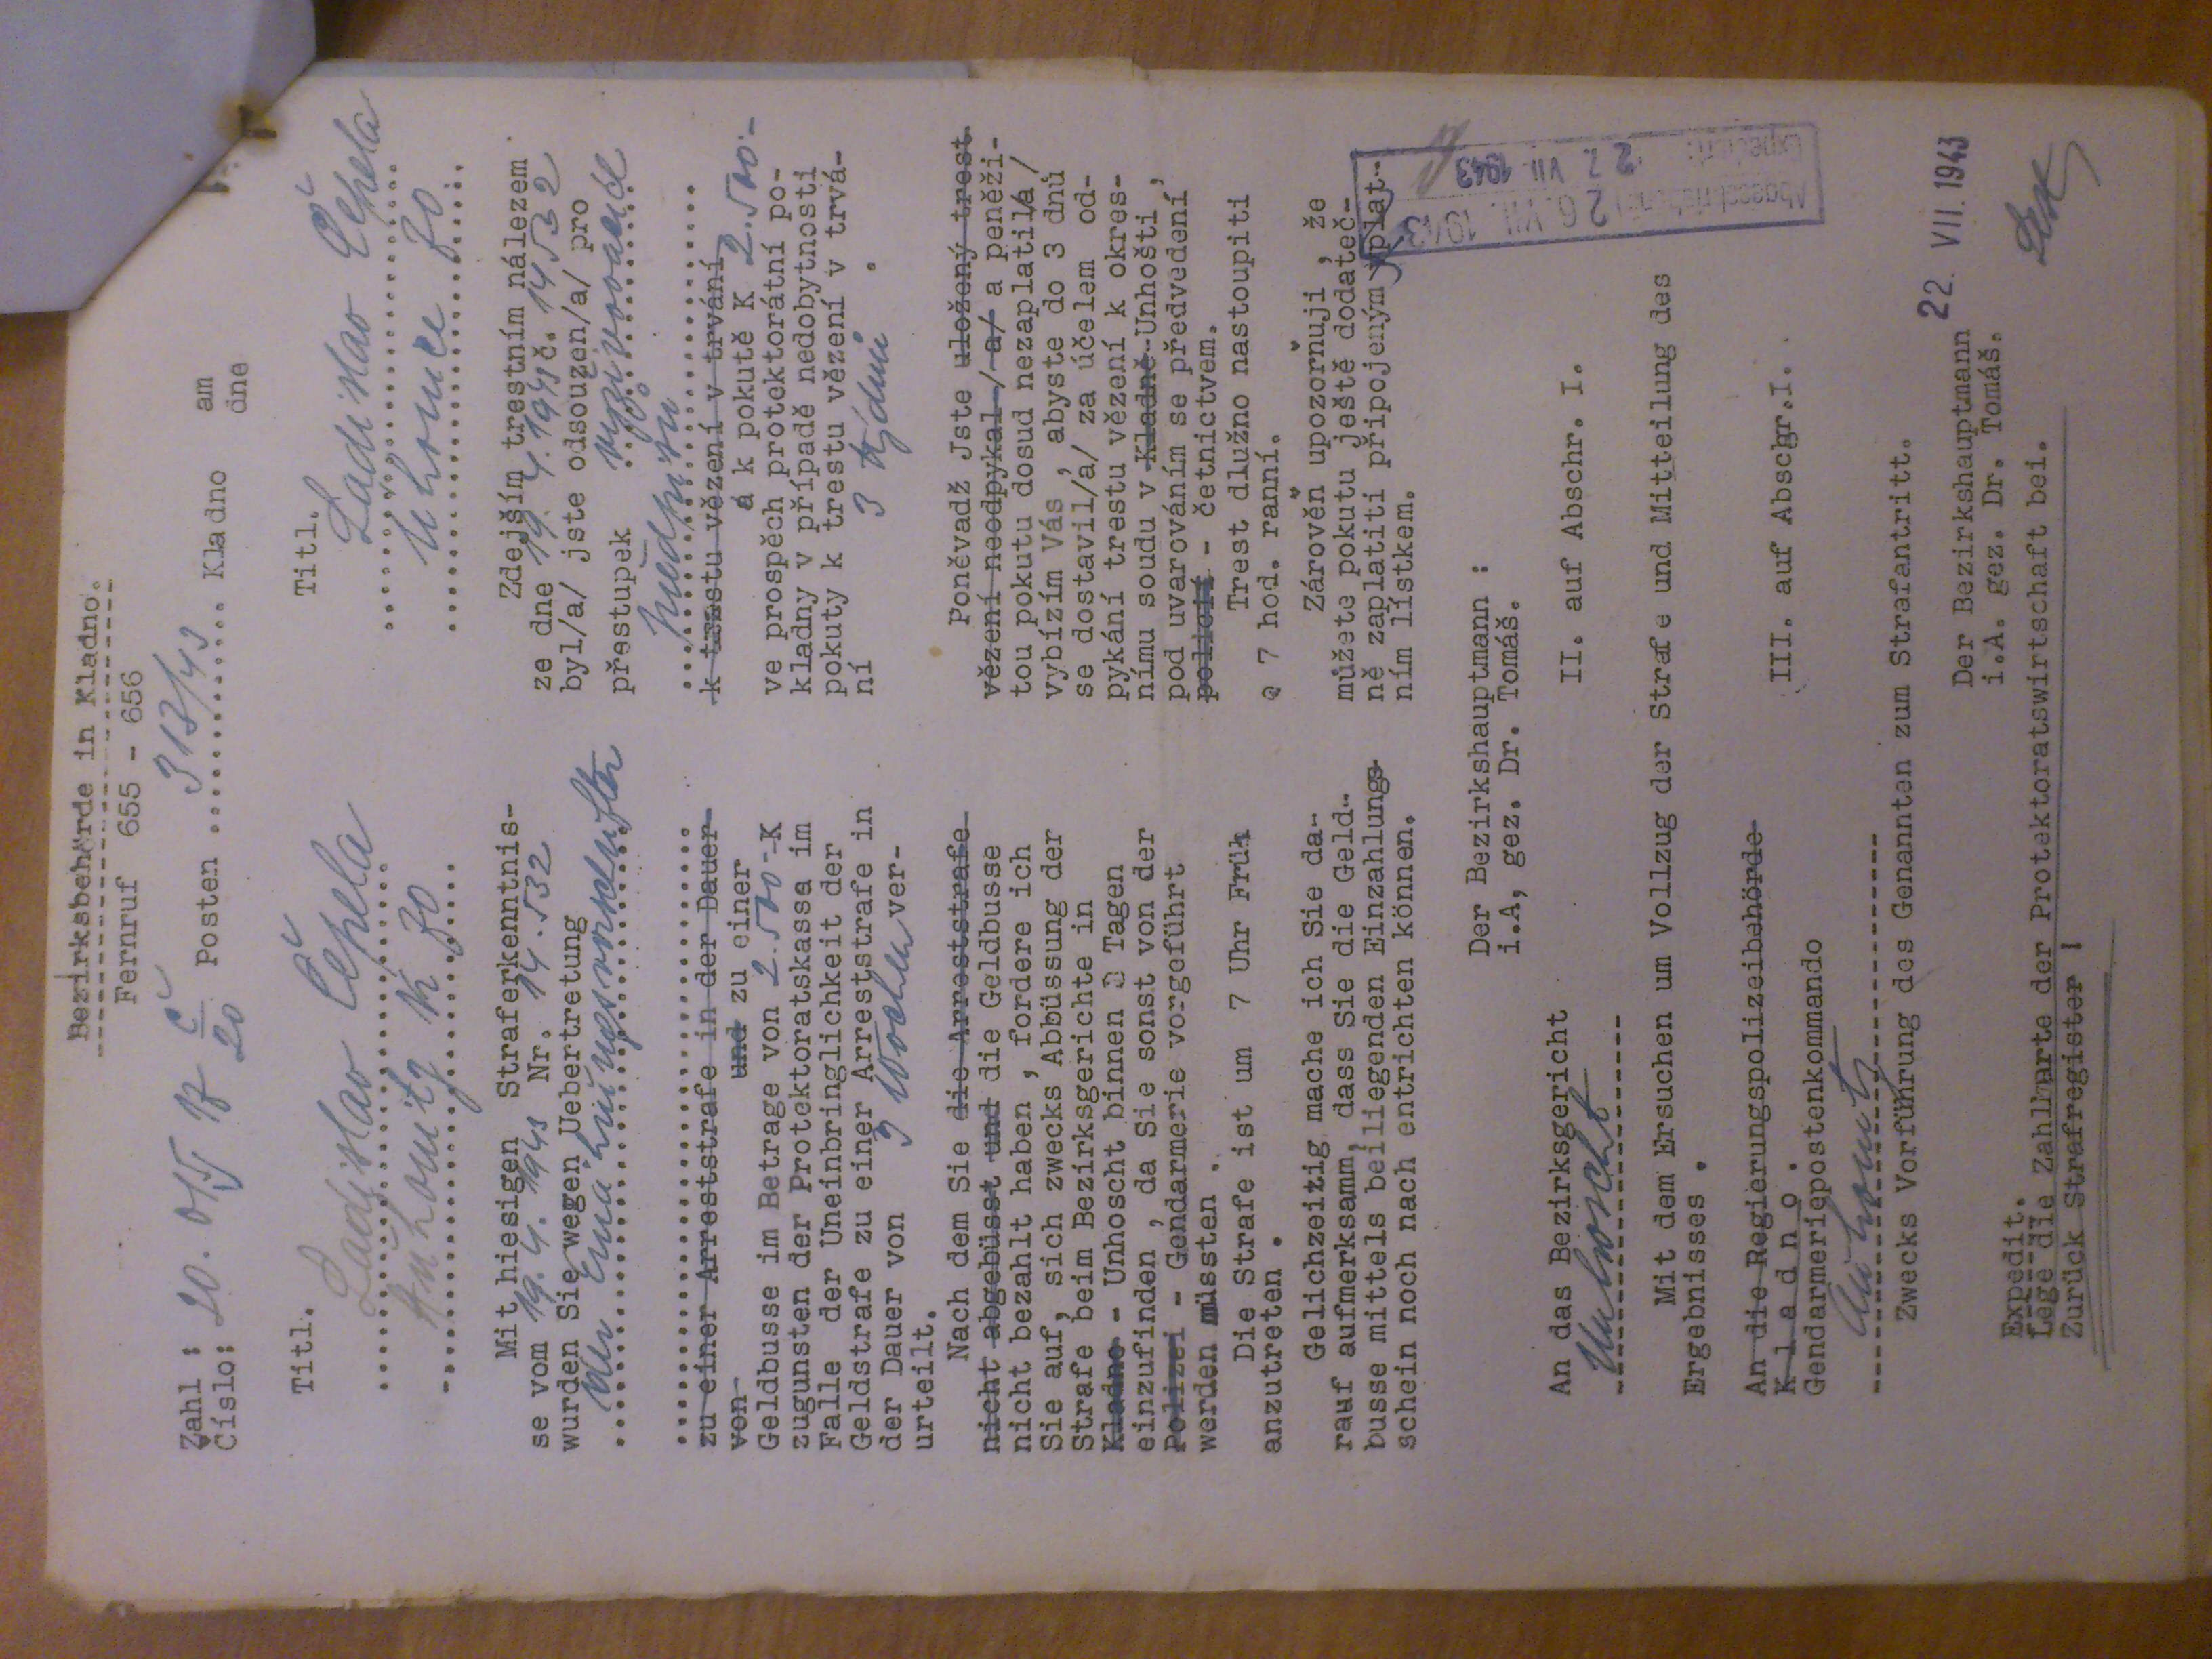 Bezirksbehörde in Kladno.
Fernruf 655 - 656
Zahl :
Číslo: 20. Posten 313/43 Kladno am
dne
Titl.
Ladislav Čepela
Auhonitz N 70
Mit hiesigen Straferkenntnis-
se vom 19.4.1943 Nr. 14.532
wurden Sie wegen Uebertretung
der Ernährungsvorschriften
zu einer Arreststrafe in der Dauer
von und zu einer
Geldbusse im Betrage von 2.500-K
zugunsten der Protektoratskassa im
Falle der Uneinbringlichkeit der
Geldstrafe zu einer Arreststrafe in
der Dauer von 3 Wochen ver-
urteilt.
Nach dem Sie die Arreststrafe
nicht abgebüsst und die Geldbusse
nicht bezahlt haben , fordere ich
Sie auf, sich zwecks Abbüssung der
Strafe beim Bezirksgerichte in
Kladno - Unhoscht binnen 3 Tagen
einzufinden , da Sie sonst von der
Polizei - Gendarmerie vorgeführt
werden müssten .
Die Strafe ist um 7 Uhr Früh
anzutreten .
Gelichzeitig mache ich Sie da-
rauf aufmerksamm, dass Sie die Geld-
busse mittels beiliegenden Einzahlungs-
schein noch nach entrichten können.
Titl.
Ladislav Čepela
Uhonice 70
Zdejším trestním nálezem
ze dne 19.4.1943 č. 14532
byl/a/ jste odsouzen/a/ pro
přestupek vyživovacích
předpisů
k trestu vězení v trvání
a k pokutě K 2.500.-
ve prospěch protektorátní po-
kladny v případě nedobytnosti
pokuty k trestu vězení v trvá-
ní 3 týdnů .
Poněvadž Jste uložený trest
vězení neodpykal / a/ a peněži-
tou pokutu dosud nezaplatil/a /
vybízím Vás , abyste do 3 dnů
se dostavil/a/ za účelem od-
pykání trestu vězení k okres-
nímu soudu v Kladně-Unhošti ,
pod uvarováním se předvedení
policií - četnictvem.
Trest dlužno nastoupiti
o 7 hod. ranní.
Zárověň upozorňuji , že
můžete pokutu ještě dodateč-
ně zaplatiti připojeným vplat-
ním lístkem.
Der Bezirkshauptmann :
i.A, gez. Dr. Tomáš.
An das Bezirksgericht
Unhoscht
II. auf Abschr. I.
Mit dem Ersuchen um Vollzug der Strafe und Mitteilung des
Ergebnisses .
An die Regierungspolizeibehörde
K l a d n o .
Gendarmeriepostenkommando
Auhonitz
III. auf Abschr.I.
Zwecks Vorführung des Genannten zum Strafantritt.
22. VII. 1943
Der Bezirkshauptmann
i.A. gez. Dr. Tomáš.
Expedit.
Lege die Zahlkarte der Protektoratswirtschaft bei.
Zurück Strafregister !
26. VII. 1943
27. VII. 1943